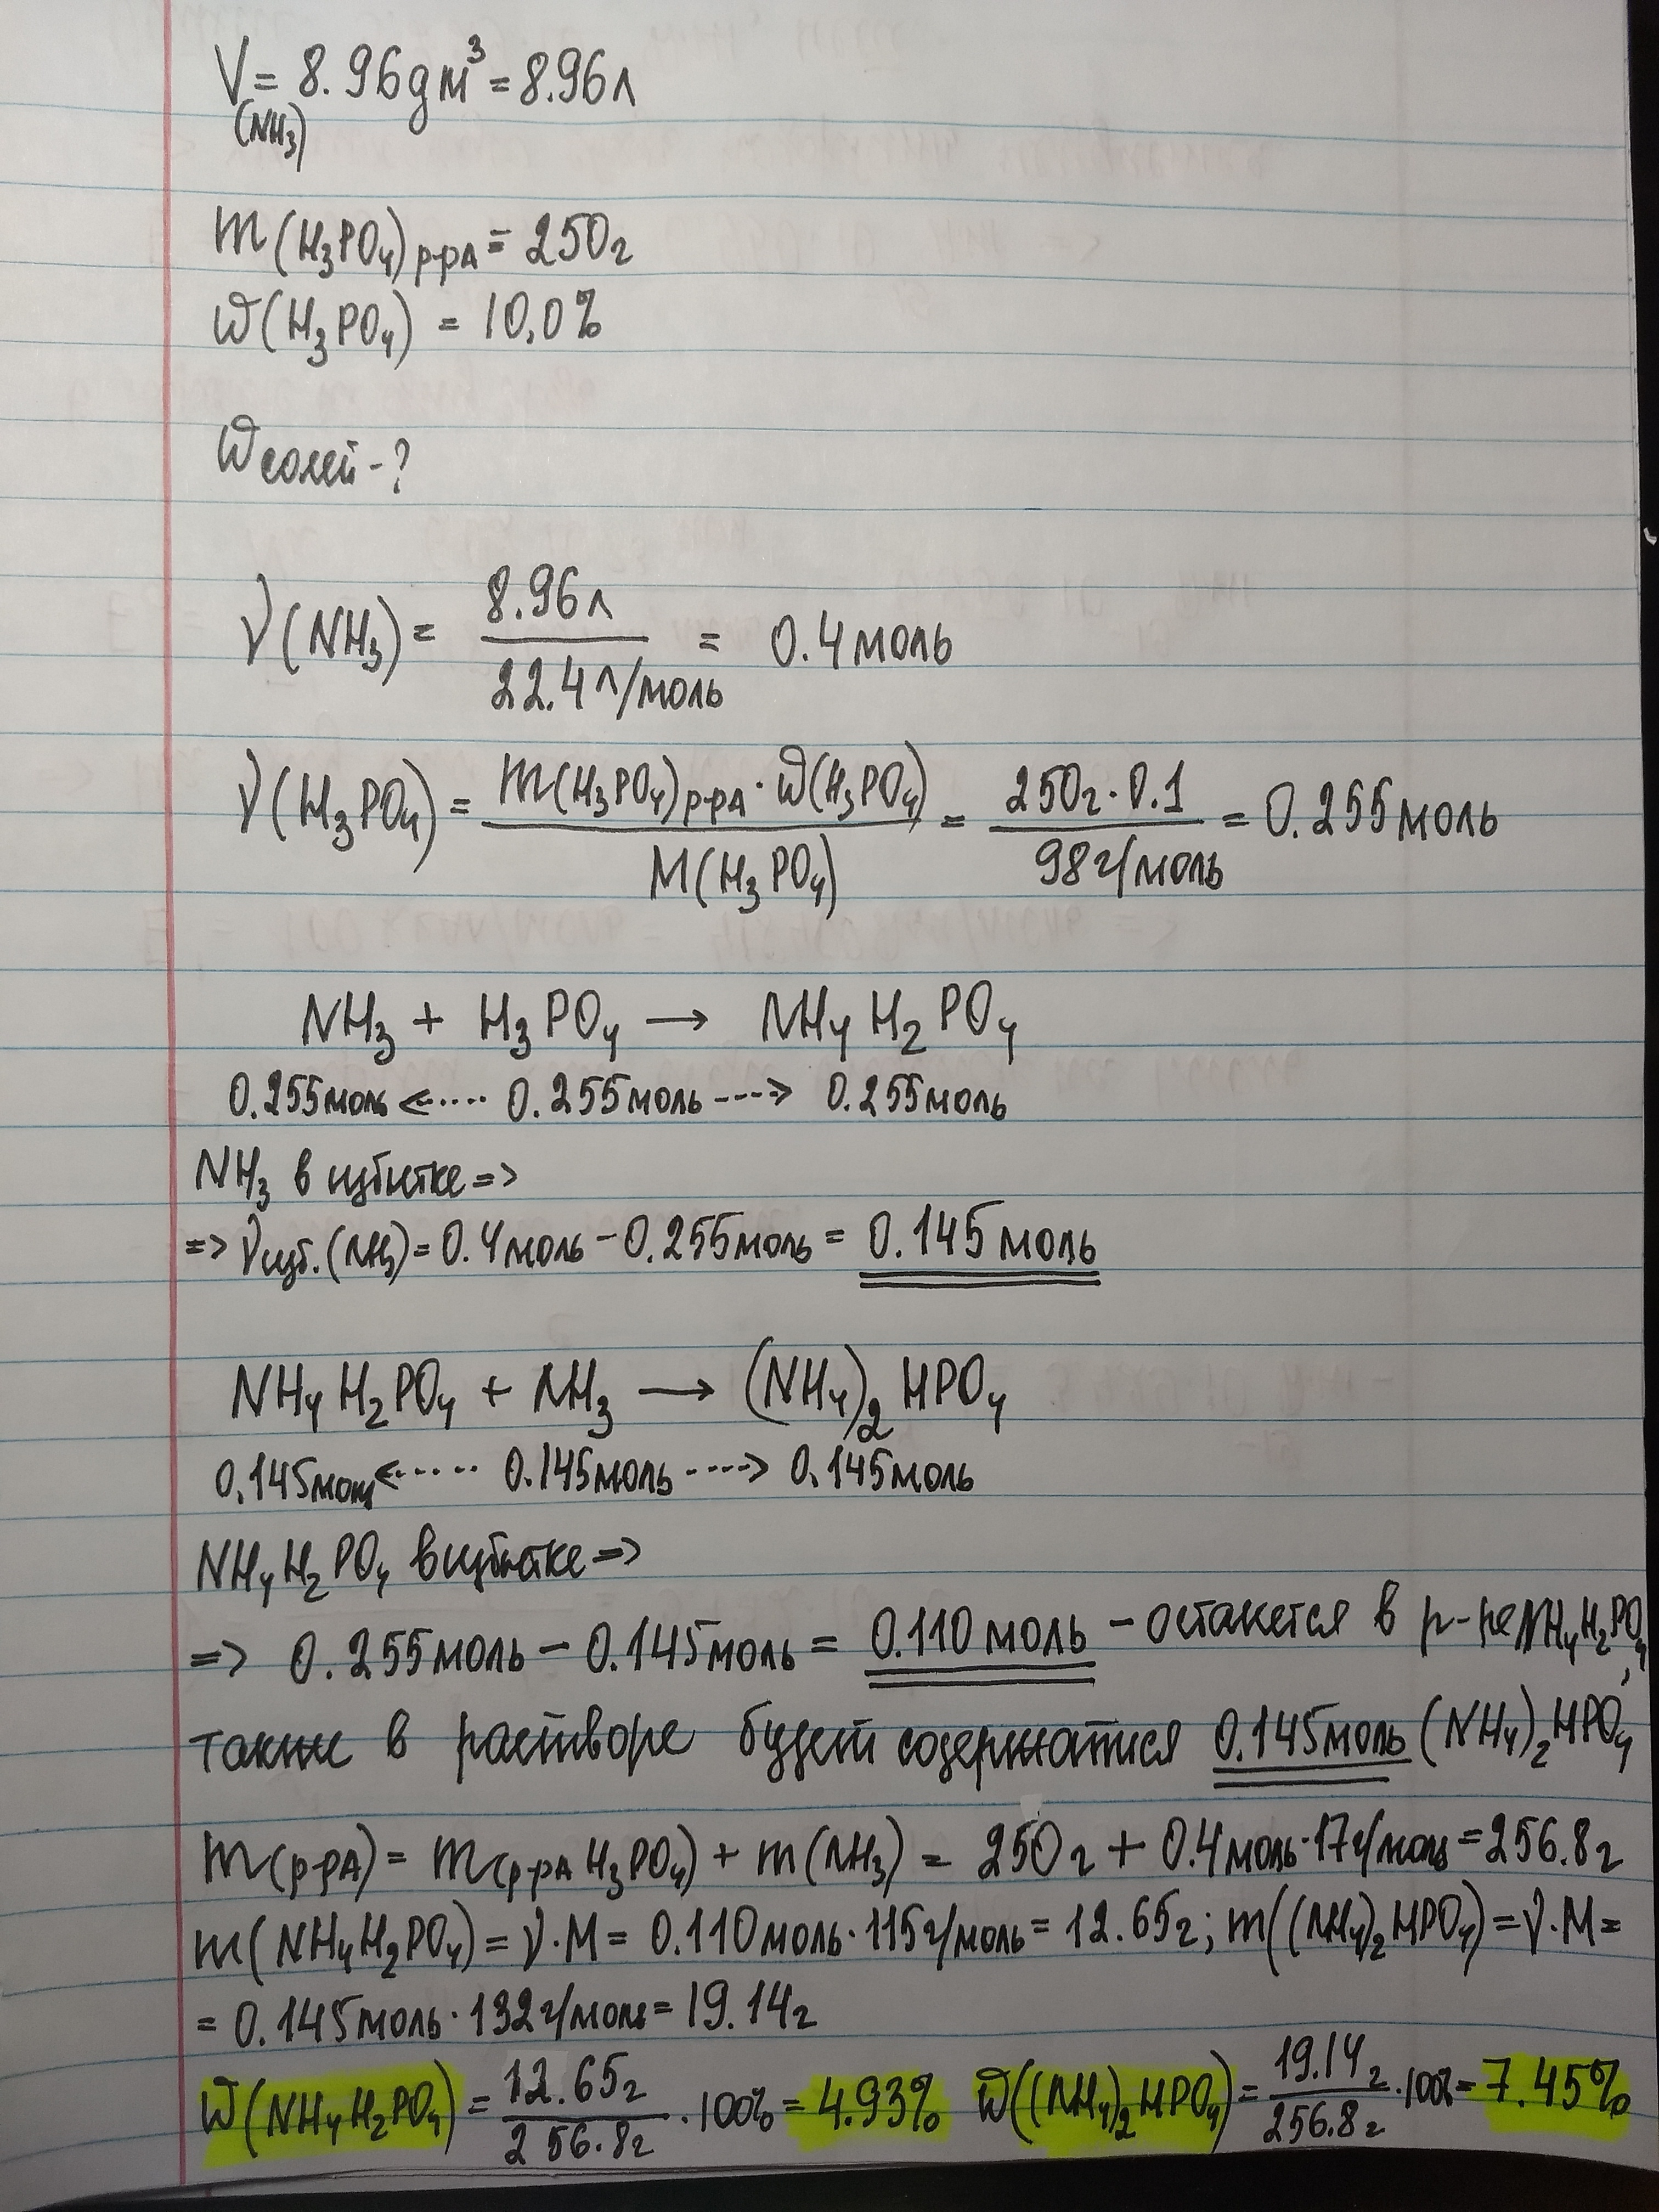 V(NH₃) = 8.96 дм³ = 8.96 л
m(H₃PO₄)р-ра = 250 г
ω(H₃PO₄) = 10,0%
ω солей - ?
ν(NH₃) = 8.96 л / 22.4 л/моль = 0.4 моль
ν(H₃PO₄) = m(H₃PO₄)р-ра · ω(H₃PO₄) / M(H₃PO₄) = 250 г · 0.1 / 98 г/моль = 0.255 моль
NH₃ + H₃PO₄ → NH₄H₂PO₄
0.255 моль <····· 0.255 моль ----> 0.255 моль
NH₃ в избытке =>
=> ν изб. (NH₃) = 0.4 моль - 0.255 моль = 0.145 моль
NH₄H₂PO₄ + NH₃ → (NH₄)₂HPO₄
0.145 моль <····· 0.145 моль ----> 0.145 моль
NH₄H₂PO₄ в избытке =>
=> 0.255 моль - 0.145 моль = 0.110 моль - останется в р-ре NH₄H₂PO₄,
также в растворе будет содержатися 0.145 моль (NH₄)₂HPO₄
m(р-ра) = m(р-ра H₃PO₄) + m(NH₃) = 250 г + 0.4 моль · 17 г/моль = 256.8 г
m(NH₄H₂PO₄) = ν · M = 0.110 моль · 115 г/моль = 12.65 г; m((NH₄)₂HPO₄) = ν · M =
= 0.145 моль · 132 г/моль = 19.14 г
ω(NH₄H₂PO₄) = 12.65 г / 256.8 г · 100% = 4.93% ω((NH₄)₂HPO₄) = 19.14 г / 256.8 г · 100% = 7.45%